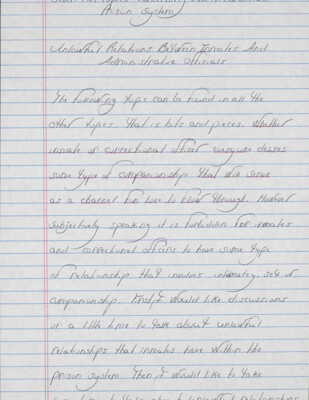 Prison System
Unlawful Relations Between Inmates And
Administrative Officials
The following type can be found in all the
other types. That is bits and pieces. Whether
inmate or correctional officer everyone desires
some type of companionship that will serve
as a channel for love to flow through. However
subjectively speaking it is forbidden for inmates
and correctional officers to have some type
of relationship that involves intimacy, sex or
companionship. First, I would like discussions
or a little time to talk about unlawful
relationships that inmates have within the
prison system. Then, I would like to take